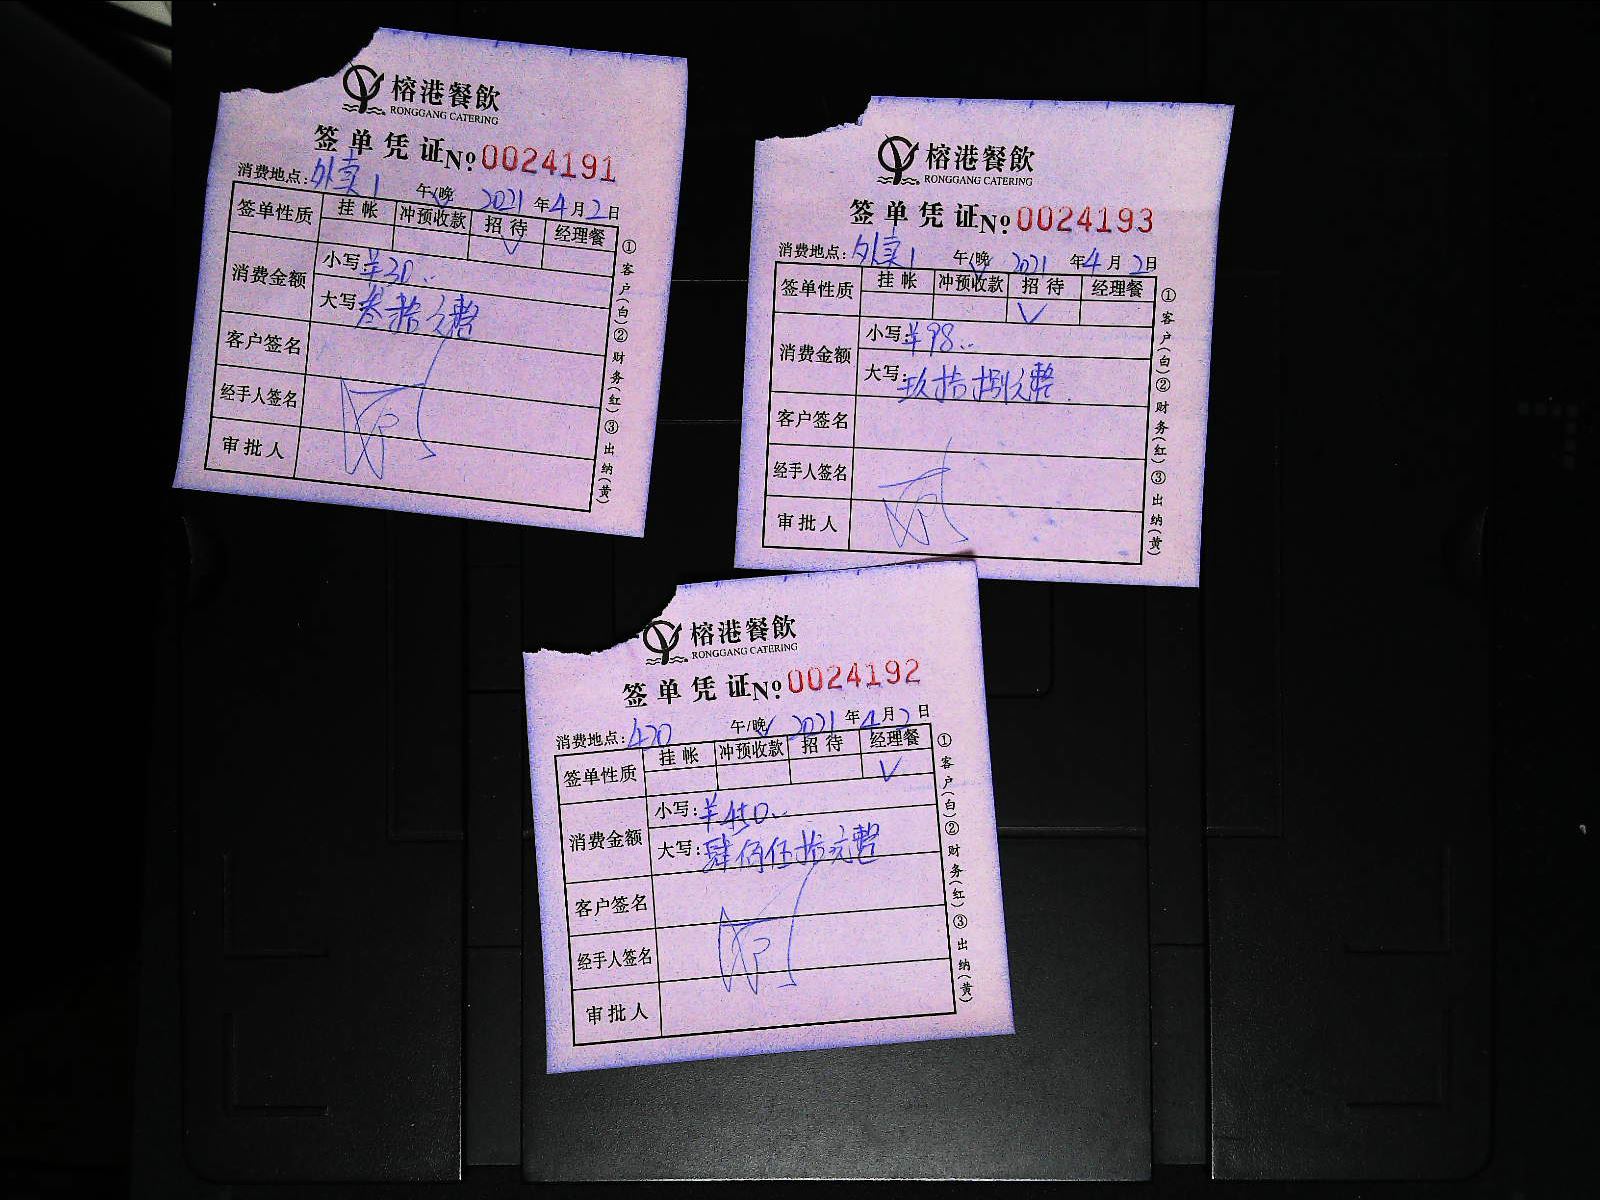 榕港餐飲
RONGGANG CATERING
签单凭证 No: 0024191
消费地点: 外卖1 午/晚 2021年4月2日
签单性质 挂帐 冲预收款 招待 经理餐
✓
消费金额 小写: ¥30..
大写: 叁拾元整
客户签名
经手人签名
审批人
①客户(白)②财务(红)③出纳(黄)
榕港餐飲
RONGGANG CATERING
签单凭证 No: 0024193
消费地点: 外卖1 午/晚 2021年4月2日
签单性质 挂帐 冲预收款 招待 经理餐
✓
消费金额 小写: ¥98..
大写: 玖拾捌元整
客户签名
经手人签名
审批人
①客户(白)②财务(红)③出纳(黄)
榕港餐飲
RONGGANG CATERING
签单凭证 No: 0024192
消费地点: 420 午/晚 2021年4月2日
签单性质 挂帐 冲预收款 招待 经理餐
✓
消费金额 小写: ¥450..
大写: 肆佰伍拾元整
客户签名
经手人签名
审批人
①客户(白)②财务(红)③出纳(黄)